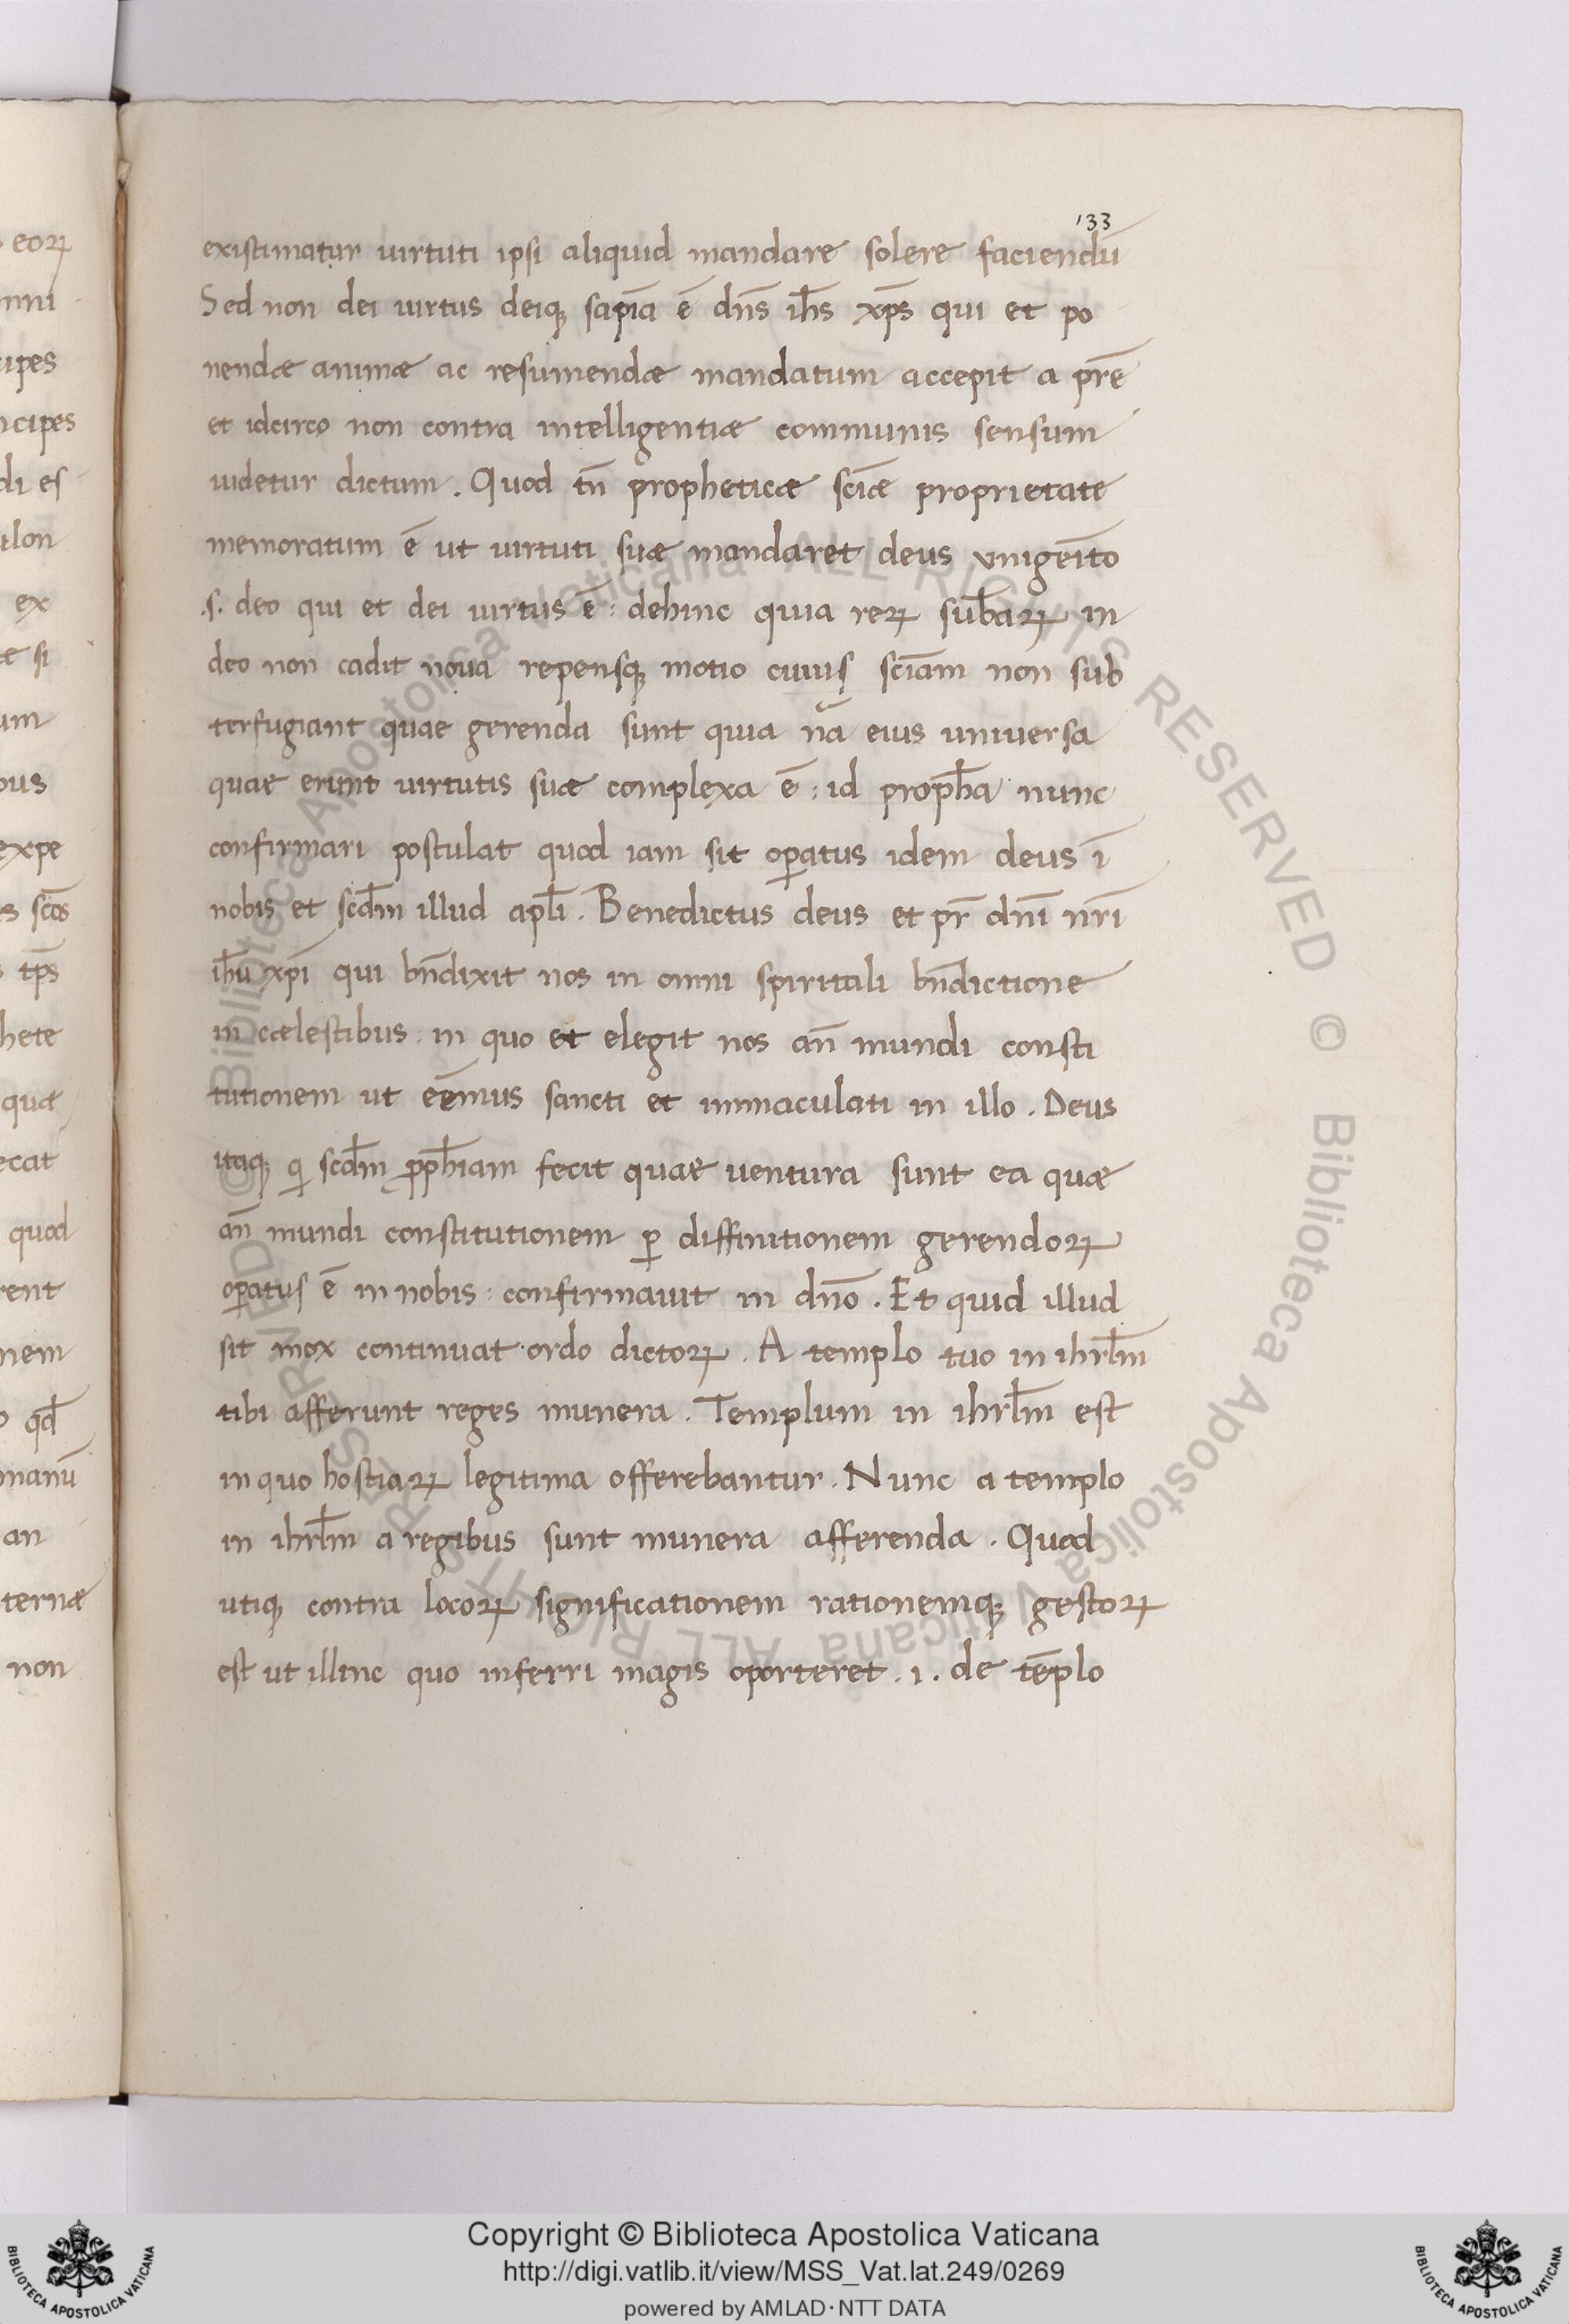 133
existimatur uirtuti ipsi aliquid mandare solere faciendū
Sed non dei uirtus deiqꝫ sapīa ē dn̄s ih̄s xp̄s qui et po
nendæ animæ ac resumendæ mandatum accepit a pr̄e
et idcirco non contra intelligentiæ communis sensum
uidetur dictum. Quod tn̄ propheticæ sciǣ proprietate
memoratum ē ut uirtuti suæ mandaret deus vnigeīto
.s. deo qui et dei uirtus ē: dehinc quia reꝝ sub̄aꝝ in
deo non cadit noua repensqꝫ motio cuius sciām non sub
terfugiant quae gerenda sunt quia nā eius uniuersa
quae erunt uirtutis suæ complexa ē: id proph̄a nunc
confirmari postulat quod iam sit oꝑatus idem deus ī
nobis et scd̄m illud apl̄i. Benedictus deus et pr̄ dn̄i nr̄i
ih̄u xp̄i qui bn̄dixit nos in omni spiritali bn̄dictione
in cælestibus: in quo et elegit nos an̄ mundi consti
tutionem ut eēmus sancti et immaculati in illo. Deus
itaqꝫ qi scd̄m ꝓph̄iam fecit quae uentura sunt ea quæ
an̄ mundi constitutionem ꝑ diffinitionem gerendoꝝ
oꝑatus ē in nobis: confirmauit in dn̄o. Et quid illud
sit mox continuat ordo dictoꝝ. A templo tuo in ihrl̄m
tibi afferunt reges munera. Templum in ihrl̄m est
in quo hostiaꝝ legitima offerebantur. Nunc a templo
in ihrl̄m a regibus sunt munera afferenda. Quod
utiqꝫ contra locoꝝ significationem rationemqꝫ gestoꝝ
est ut illinc quo inferri magis oporteret .i. de tēplo
eoꝝ
mni
cipes
ncipes
di es
ulon
ex
æ si
um
ous
expe
s scōs
tp̄s
hete
quæ
ecat
quod
rent
nem
qd̄
manū
an
ternæ
non
© Biblioteca Apostolica Vaticana ALL RIGHTS RESERVED © Biblioteca Apostolica Vaticana ALL RIGHTS RESERVED
Copyright © Biblioteca Apostolica Vaticana
http://digi.vatlib.it/view/MSS_Vat.lat.249/0269
powered by AMLAD・NTT DATA
BIBLIOTECA APOSTOLICA VATICANA
BIBLIOTECA APOSTOLICA VATICANA